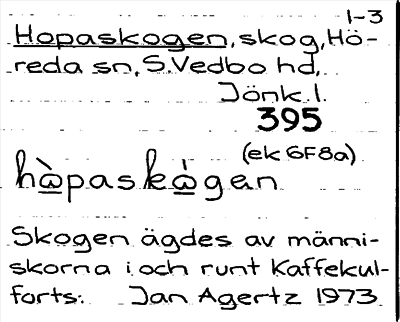 1-3
Hopaskogen, skog, Hö-
reda sn, S.Vedbo hd,
Jönk. l.
395
(ek 6F8a)
hàpaskàgen
Skogen ägdes av männi-
skorna i och runt Kaffekul-
forts. Jan Agertz 1973